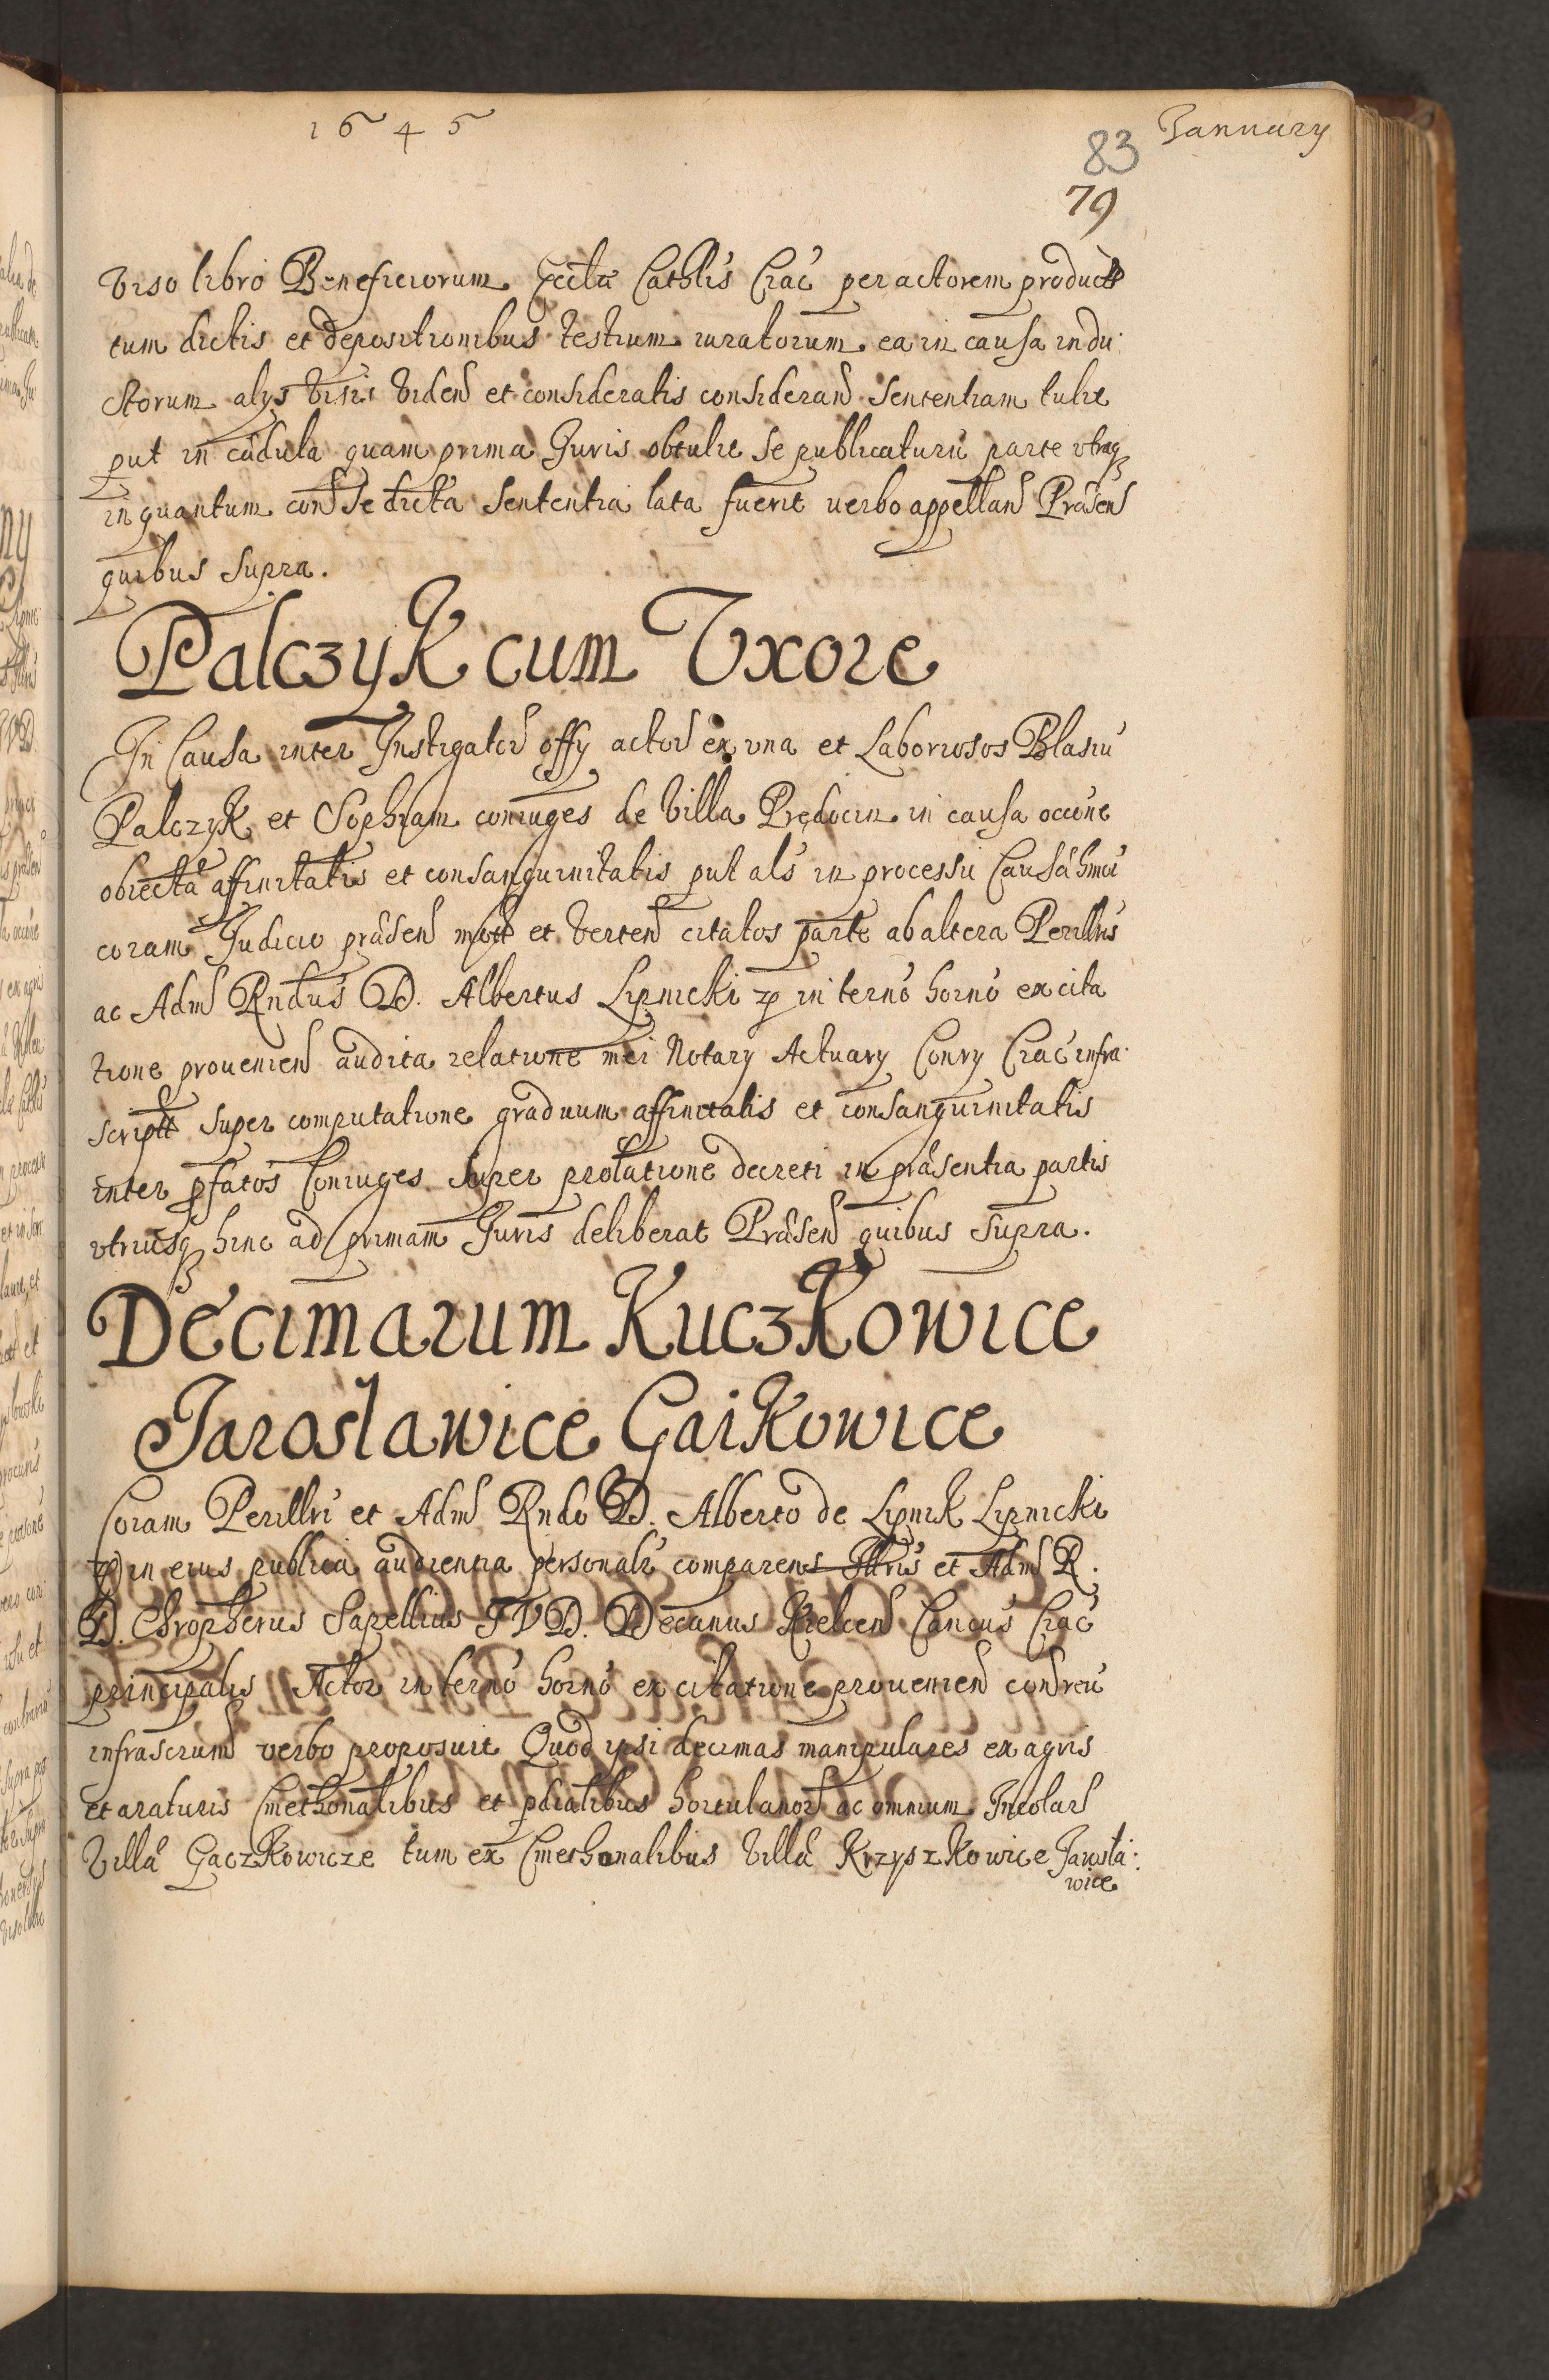 1645
January
83
79
Viso libro Beneficiorum Eccłæ Cathlis Crac̃ per actorem product
tum dictis et depositionibus testium iuratorum ea in causa indu:
ctorum alijs visis videñ et consideratis considerañ Sententiam tulit
put in cædula quam prima Juris obtulit se publicaturũ parte vtraq
in quantum con se dicta sententia lata fuerit verbo appellañ Præseñ
quibus supra.
Palczyk cum Vxore
In Causa inter Instigatoř offy actoř ex vna et Laboriosos Blasiũ
Palczyk et Sophiam coniuges de Villa Prędocin in causa occõne
obiectæ affinitatis et consanguinitatis put als in processu Causæ hmõi
coram Judicio præseñ mott et verteñ citatos parte ab altera Perillris
ac Adm Rndus D. Albertus Lipnicki in termõ hornõ ex cita
tione provenieñ audita relatione mei Notary Actuary Conry Crac̃ infra:
scriptt super computatione graduum affinitatis et consanguinitatis
inter pfatos Coniuges super prolatione decreti in præsentia partis
vtriusq hinc ad primam Juris deliberat Præseñ quibus supra.
Decimarum Kuczkowice
Jarosławice Gaikowice
Coram Perillri et Adm Rndo D. Alberto de Lipnik Lipnicki
in eius publica audientia personalr comparens Illris et Adm R.
D. Chropherus Sapellius JVD. Decanus Kielceñ Cancus Crac̃
principalis Actor in termõ hornõ ex citatione provenieñ con reũ
infrascrum verbo proposuit Quod ipsi decimas manipulares ex agris
et araturis Cmethonalibus et pdialibus hortulanoř ac omnium Incolař
Villæ Gaczkowicze tum ex Cmethonalibus Villæ Krzyszkowice Jarosła:
wice